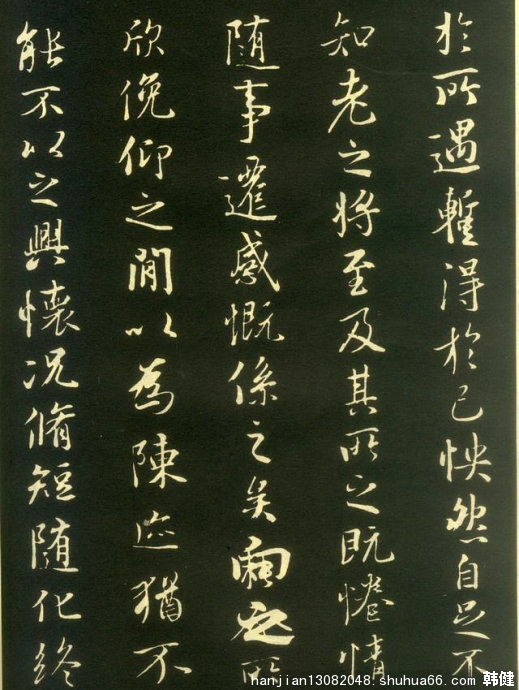 於所遇蹔得於己怏然自足不
知老之將至及其所之既惓情
随事遷感慨係之矣向之所
欣俛仰之閒以為陳迹猶不
能不以之興懷况脩短随化終
hanjian13082048.shuhua66.com 韩健